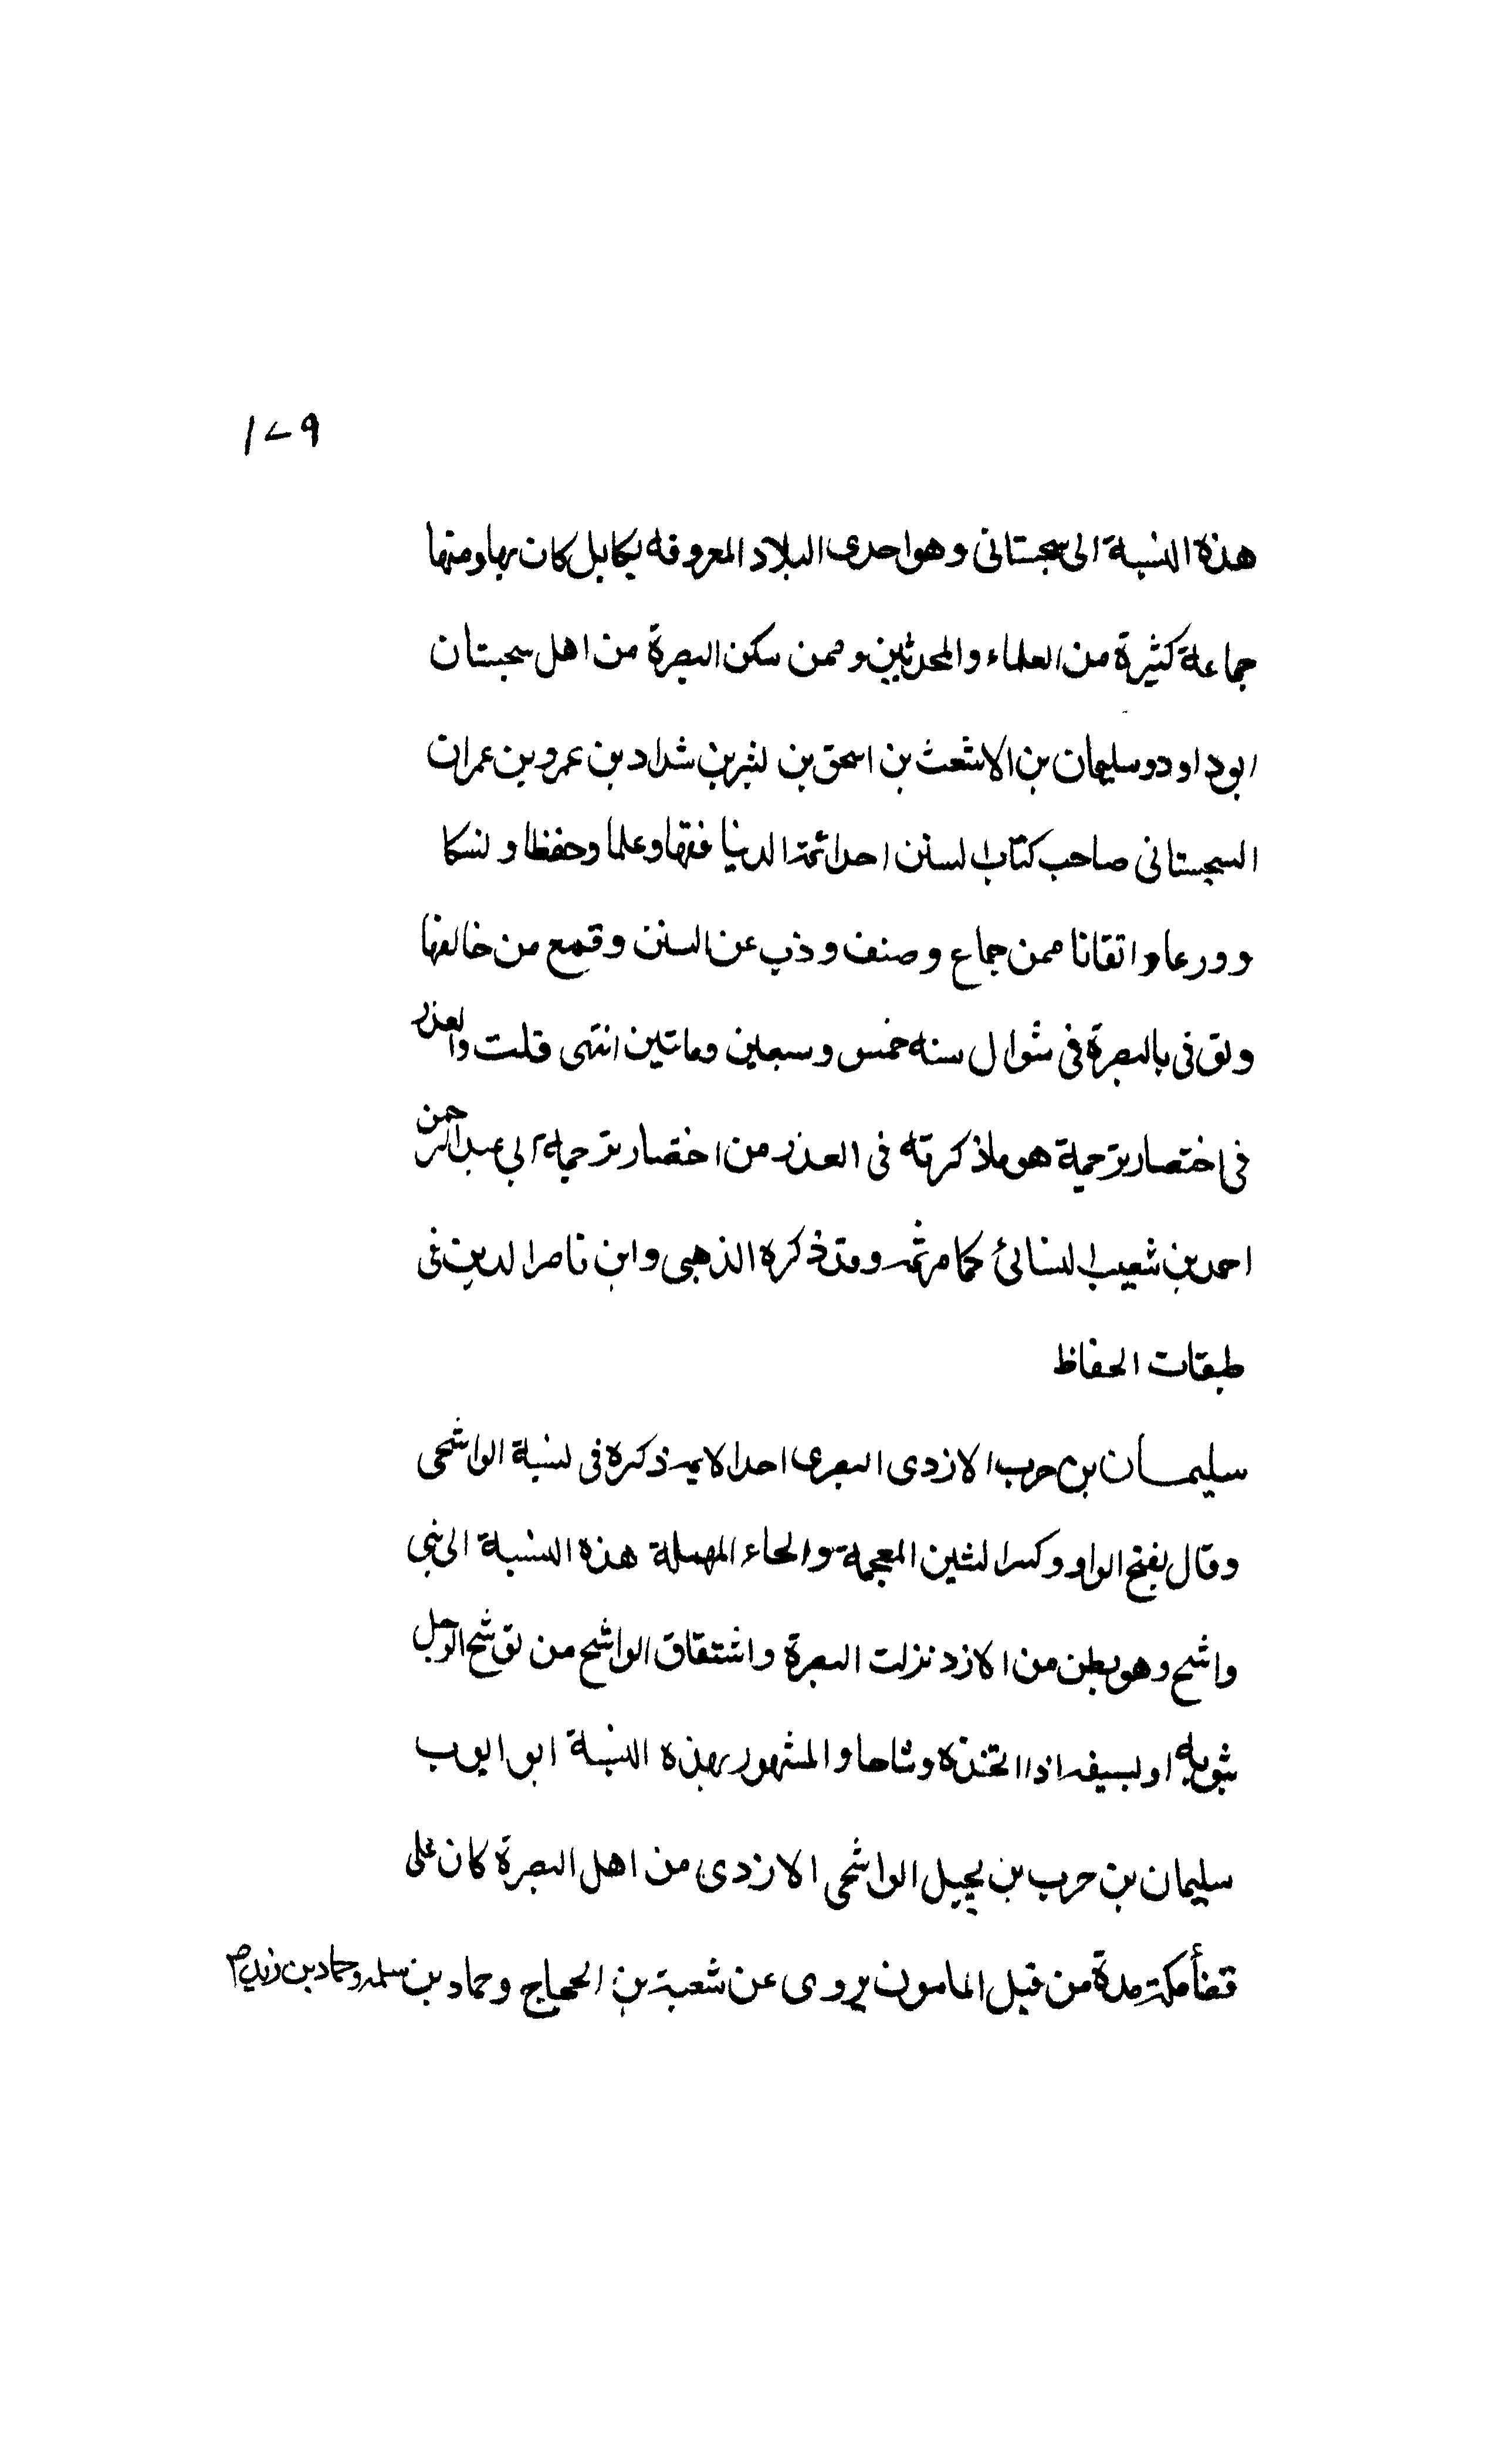 ١٧٩
هذه النسبة الى سجستانى وهو احدى البلاد المعروفه بكابل كان بها ومنها
جماعة كثيرة من العلماء والمحدثين وممن سكن البصرة من اهل سجستان
ابو داودو سليمان بن الاشعث بن اسحق بن بشر بن شداد بن عمرو بن عمران
السجستانى صاحب كتاب السنن احد ائمة الدنيا فقها وعلما وحفظا و نسكا
وورعا واتقانا ممن جماع وصنف وذب عن السنن وقمع من خالفها
وتوفى بالبصرة فى شوال سنه خمس وسبعين ومائتين انتهى قلت والعذر
فى اختصار ترحمة هو ماذكرته فى العذر من اختصار ترحمة ابى عبدالرحمن
احمد بن شعيب النسائى كما مر ثمه وقد ذكره الذهبى وابن ناصر الدين فى
طبقات الحفاظ
سليمان بن حرب الازدى البصرى احد الايمه ذكره فى نسبة الواشحى
وقال بفتح الواو وكسر الشين المعجمة والحاء المهملة هذه النسبة الى بنى
واشح وهو بطن من الازد نزلت البصرة واشتقاق الواشح من توشح الرجل
بثوبه او بسيفه اذا اتخذه وشاحا والمشهور بهذه النسبة ابو ايوب
سليمان بن حرب بن بجيل الواشحى الازدى من اهل البصرة كان على
قضأ مكة مدة من قبل المامون يروى عن شعبة بن الحجاج وحماد بن سلمه وحماد بن زيد